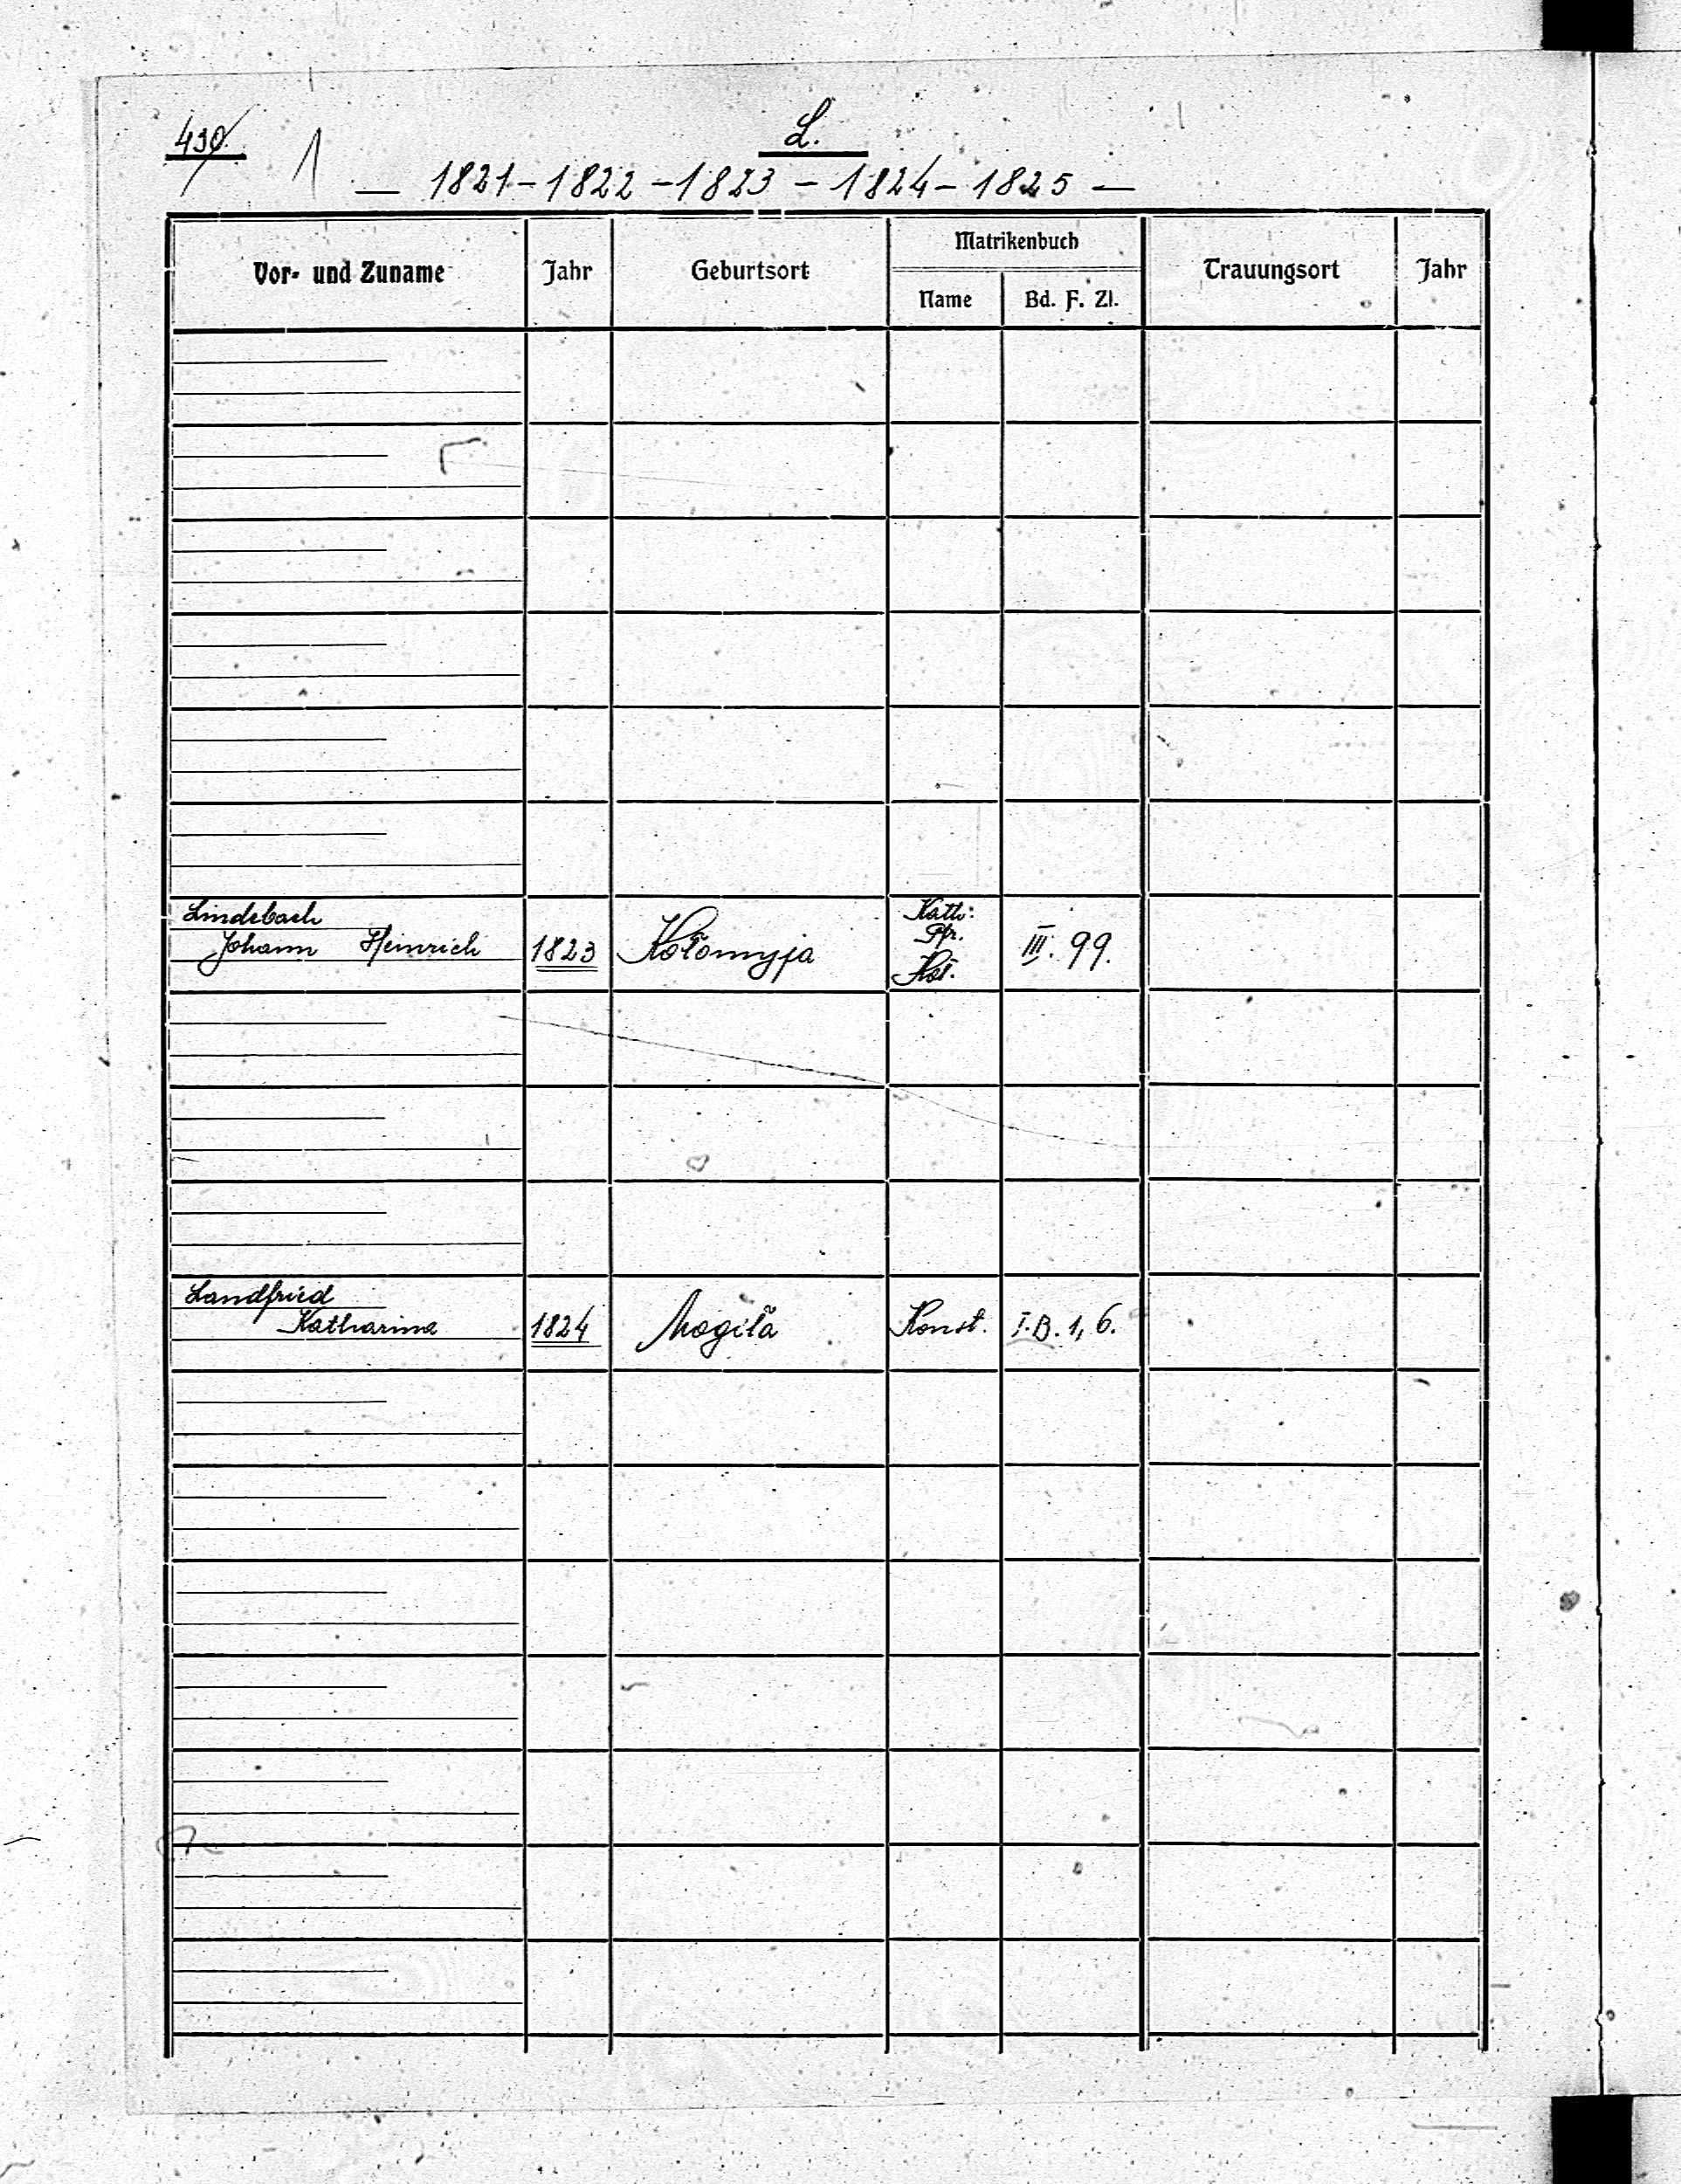 430. 1
L.
— 1821 - 1822 - 1823 - 1824 - 1825 —
Vor- und Zuname Jahr Geburtsort Matrikenbuch Trauungsort Jahr
Name Bd. F. Zl.
Lindebach
Johann Heinrich 1823 Kołomyja Kath: Pfr. Koł. III. 99.
Landfried
Katharina 1824 Mogiła Konst. I.B. 1, 6.